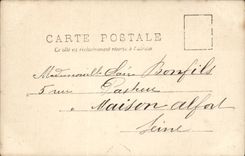 CARTE POSTALE
Ce côté est exclusivement réservé à l'adresse
Mademoiselle Claire Bonfils
5 rue Pasteur
à Maison Alfort
Seine